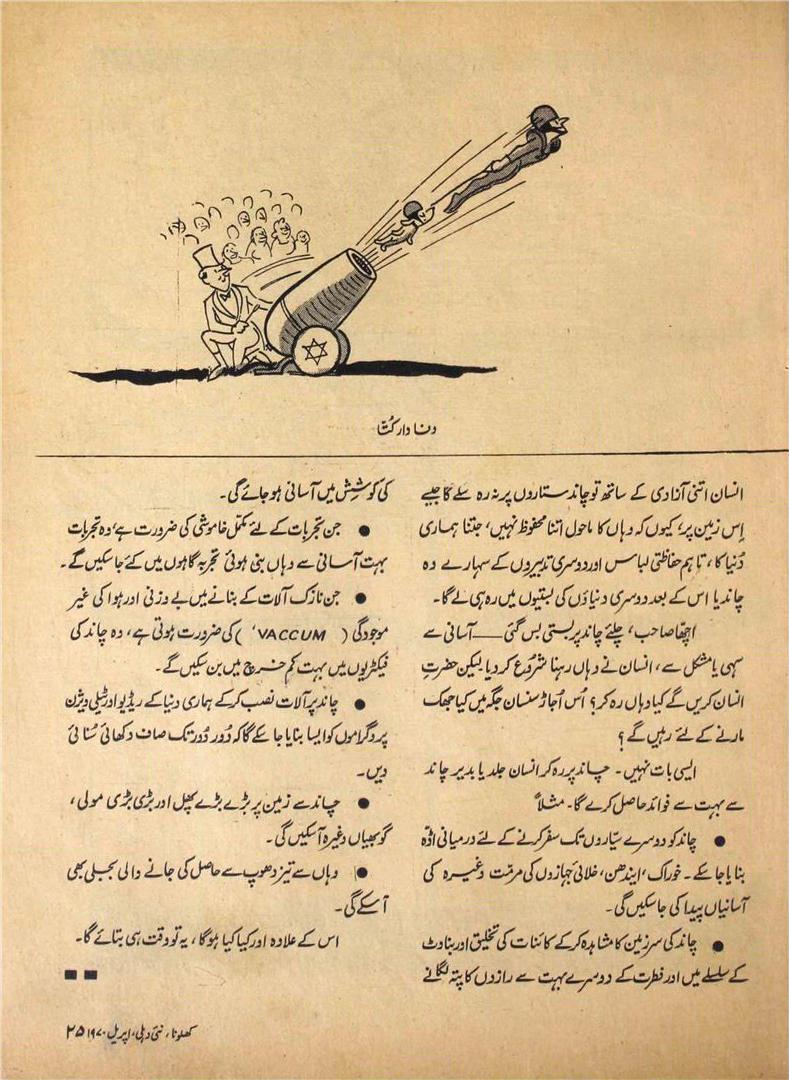 وفا دار کتّا
انسان اتنی آزادی کے ساتھ تو چاند ستاروں پر نہ رہ سکے گا جیسے
اِس زمین پر، کیوں کہ وہاں کا ماحول اتنا محفوظ نہیں، جتنا ہماری
دُنیا کا، تاہم حفاظتی لباس اور دوسری تدبیروں کے سہارے وہ
چاند یا اس کے بعد دوسری دنیاؤں کی بستیوں میں رہ ہی لے گا۔
اچھا صاحب، چلئے چاند پر بستی بس گئی — آسانی سے
سہی یا مشکل سے، انسان نے وہاں رہنا شروع کر دیا لیکن حضرتِ
انسان کریں گے کیا وہاں رہ کر؟ اُس اُجاڑ سنسان جگہ میں کیا جھک
مارنے کے لئے رہیں گے؟
ایسی بات نہیں۔ چاند پر رہ کر انسان جلد یا بدیر چاند
سے بہت سے فوائد حاصل کرے گا۔ مثلاً
● چاند کو دوسرے سیّاروں تک سفر کرنے کے لئے درمیانی اڈّہ
بنایا جا سکے۔ خوراک، ایندھن، خلائی جہازوں کی مرمّت وغیرہ کی
آسانیاں پیدا کی جا سکیں گی۔
● چاند کی سرزمین کا مشاہدہ کرکے کائنات کی تخلیق اور بناوٹ
کے سلسلے میں اور فطرت کے دوسرے بہت سے رازوں کا پتہ لگانے
کی کوشِش میں آسانی ہو جائے گی۔
● جن تجربات کے لئے مکمّل خاموشی کی ضرورت ہے، وہ تجربات
بہت آسانی سے وہاں بنی ہوئی تجربہ گاہوں میں کئے جا سکیں گے۔
● جن نازک آلات کے بنانے میں بے وزنی اور ہوا کی غیر
موجودگی (VACCUM') کی ضرورت ہوتی ہے، وہ چاند کی
فیکٹریوں میں بہت کم خرچ میں بن سکیں گے۔
● چاند پر آلات نصب کرکے ہماری دنیا کے ریڈیو اور ٹیلی ویژن
پروگراموں کو ایسا بنایا جا سکے گا کہ دُور دُور تک صاف دکھائی سُنائی
دیں۔
● چاند سے زمین پر بڑے بڑے پھل اور بڑی بڑی مولی،
گوبھیاں وغیرہ آ سکیں گی۔
● وہاں سے تیز دھوپ سے حاصل کی جانے والی بجلی بھی
آ سکے گی۔
اس کے علاوہ اور کیا کیا ہوگا، یہ تو وقت ہی بتائے گا۔
کھلونا، نئی دہلی، اپریل ۱۹۷۰ ۲۵